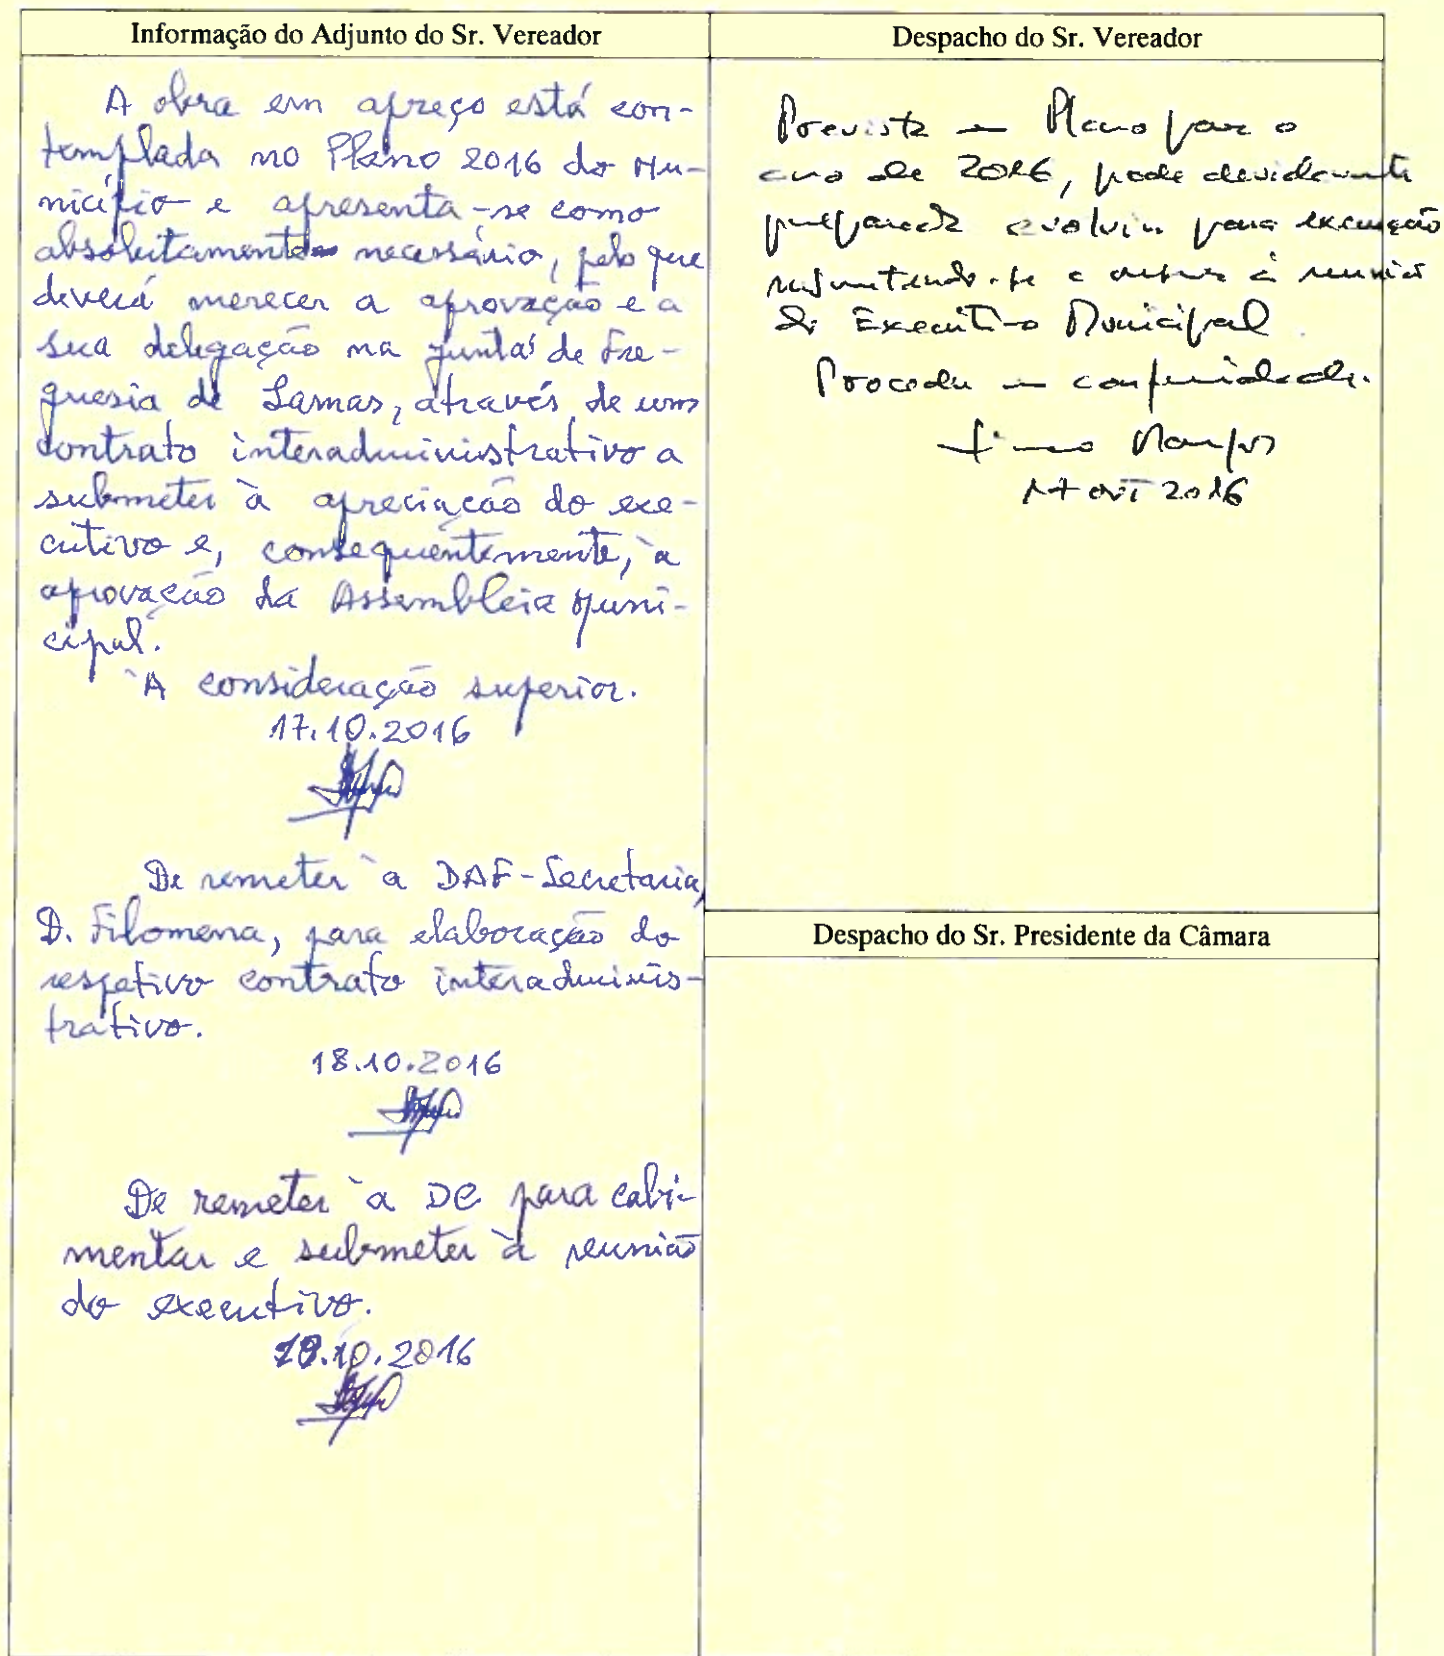 Informação do Adjunto do Sr. Vereador
A obra em apreço está con-
templada no Plano 2016 do Mu-
nicípio e apresenta-se como
absolutamente necessário, pelo que
deverá merecer a aprovação e a
sua delegação na Junta de Fre-
guesia de Lamas, através de um
contrato interadministrativo a
submeter à apreciação do exe-
cutivo e, consequentemente, à
aprovação da Assembleia Muni-
cipal.
À consideração superior.
17.10.2016
De remeter à DAF-Secretaria,
D. Filomena, para elaboração do
respetivo contrato interadminis-
trativo.
18.10.2016
De remeter à DC para cabi-
mentar e submeter à reunião
do executivo.
18.10.2016
Despacho do Sr. Vereador
Prevista em Plano para o
ano de 2016, pode devidamente
preparada evoluir para execução
à reunião
do Executivo Municipal.
Proceda em conformidade.
17 OUT 2016
Despacho do Sr. Presidente da Câmara